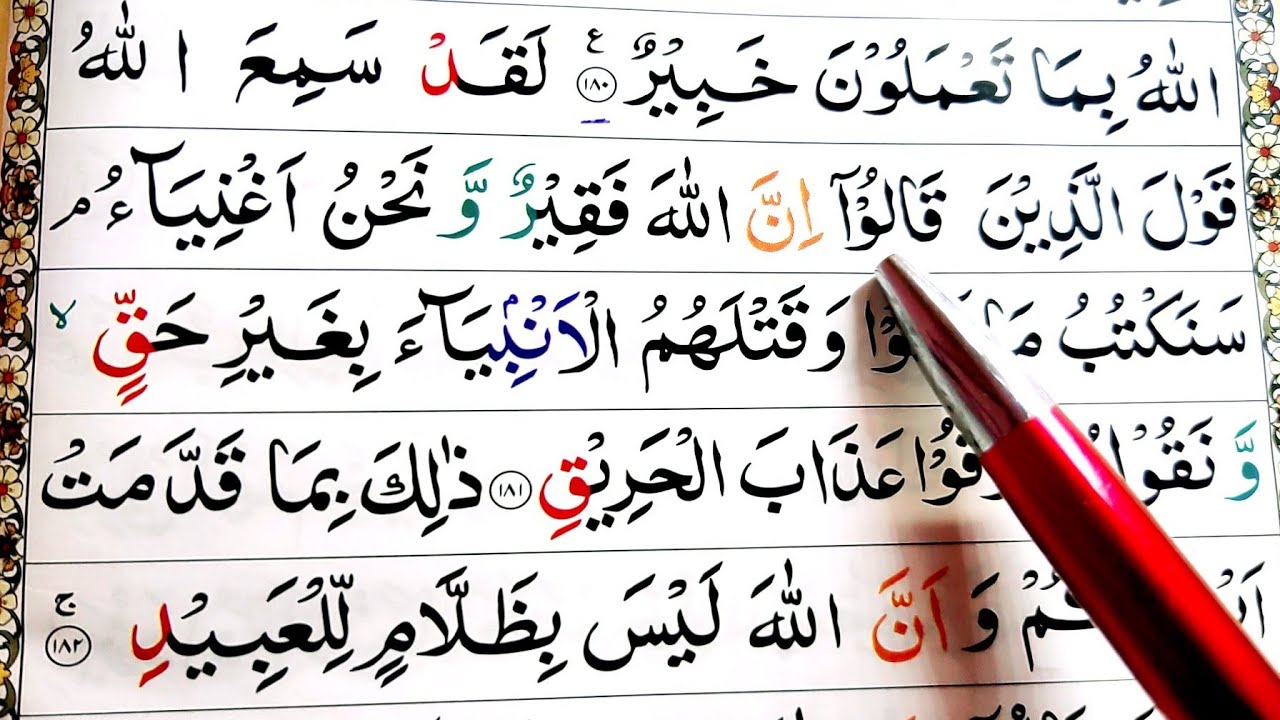 اللهُ بِمَا تَعْمَلُوْنَ خَبِيْرٌ ؏ ۱۸۰ لَقَدْ سَمِعَ اللهُ
قَوْلَ الَّذِيْنَ قَالُوْٓا اِنَّ اللهَ فَقِيْرٌ وَّ نَحْنُ اَغْنِيَآءُ ۘ
سَنَكْتُبُ وَقَتْلَهُمُ الْاَنْۢبِيَآءَ بِغَيْرِ حَقٍّ ۙ
وَّ عَذَابَ الْحَرِيْقِ ۱۸۱ ذٰلِكَ بِمَا قَدَّمَتْ
وَ اَنَّ اللهَ لَيْسَ بِظَلَّامٍ لِّلْعَبِيْدِ ۚ ۱۸۲